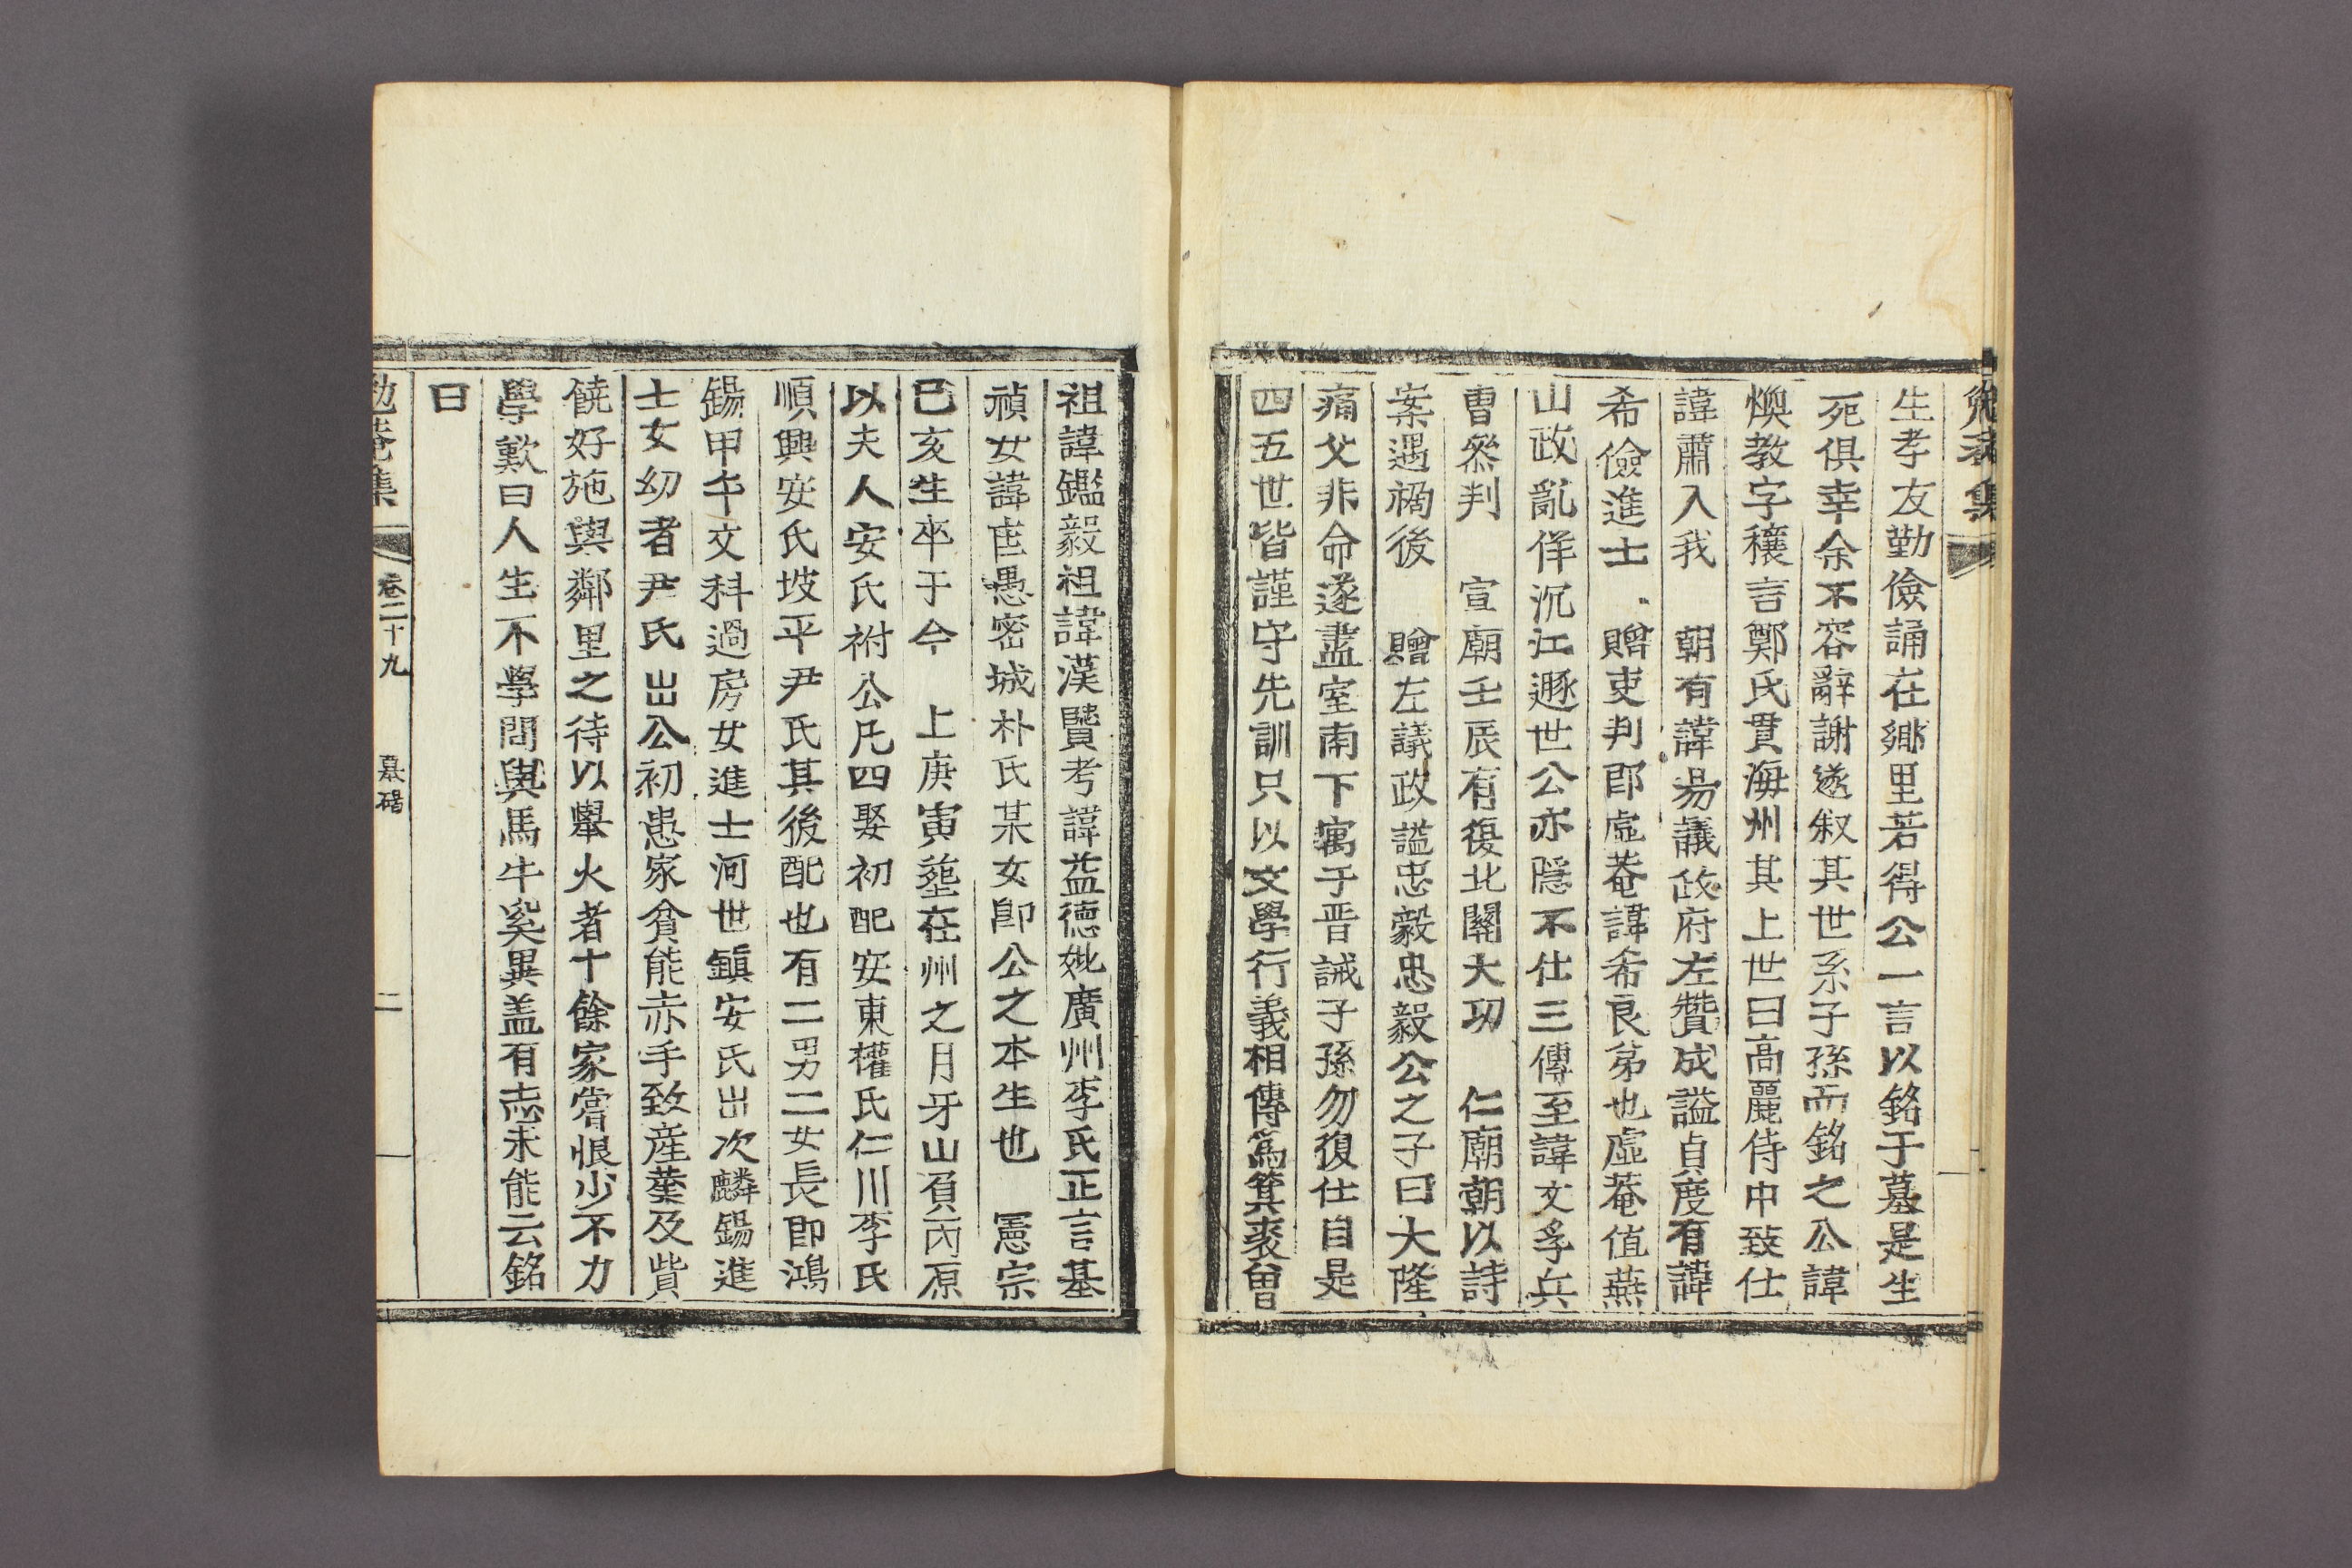 生孝友勤儉誦在鄉里若得公一言以銘于墓是生
死俱幸余不容辭謝遂叙其世系子孫而銘之公諱
煥敎字穰言鄭氏貫海州其上世曰高麗侍中致仕
諱肅入我 朝有諱易議政府左贊成諡貞度有諱
希儉進士 贈吏判卽虛菴諱希良弟也虛菴値燕
山政亂佯沉江遯世公亦隱不仕三傳至諱文孚兵
曹叅判 宣廟壬辰有復北關大功 仁廟朝以詩
案遇禍後 贈左議政諡忠毅忠毅公之子曰大隆
痛父非命遂盡室南下寓于晋誡子孫勿復仕自是
四五世皆謹守先訓只以文學行義相傳爲箕裘曾
祖諱鑑毅祖諱漢賢考諱益德妣廣州李氏正言基
禎女諱 愚密城朴氏某女卽公之本生也 憲宗
己亥生卒于今 上庚寅葬在州之月牙山負丙原
以夫人安氏祔公凡四娶初配安東權氏仁川李氏
順興安氏坡平尹氏其後配也有二男二女長卽鴻
錫甲午文科過房女進士河世鎭安氏出次麟錫進
士女幼者尹氏出公初患家貧能赤手致産業及貲
饒好施與鄰里之待以擧火者十餘家嘗恨少不力
學歎曰人生不學問與馬牛奚異盖有志未能云銘
曰
勉菴集 卷二十九 墓碣 二